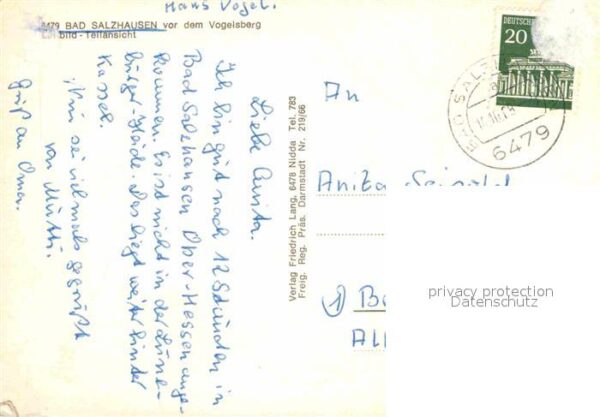 Hans Vogel.
6479 BAD SALZHAUSEN vor dem Vogelsberg
Luftbild - Teilansicht
Liebe Anita.
Ich bin gut nach 12 Stunden in
Bad Salzhausen Ober-Hessen ange-
kommen. Es ist nicht in der Lüne-
burger-Heide. Das liegt weiter hinter
Kassel.
Nun sei vielmals gegrüßt
von Mutti.
Gruß an Omar.
Verlag Friedrich Lang, 6478 Nidda Tel. 783
Freig. Reg. Präs. Darmstadt Nr. 219/66
DEUTSCHE
20
BAD SALZ
6479
An
Anita
1 B
privacy protection
Datenschutz